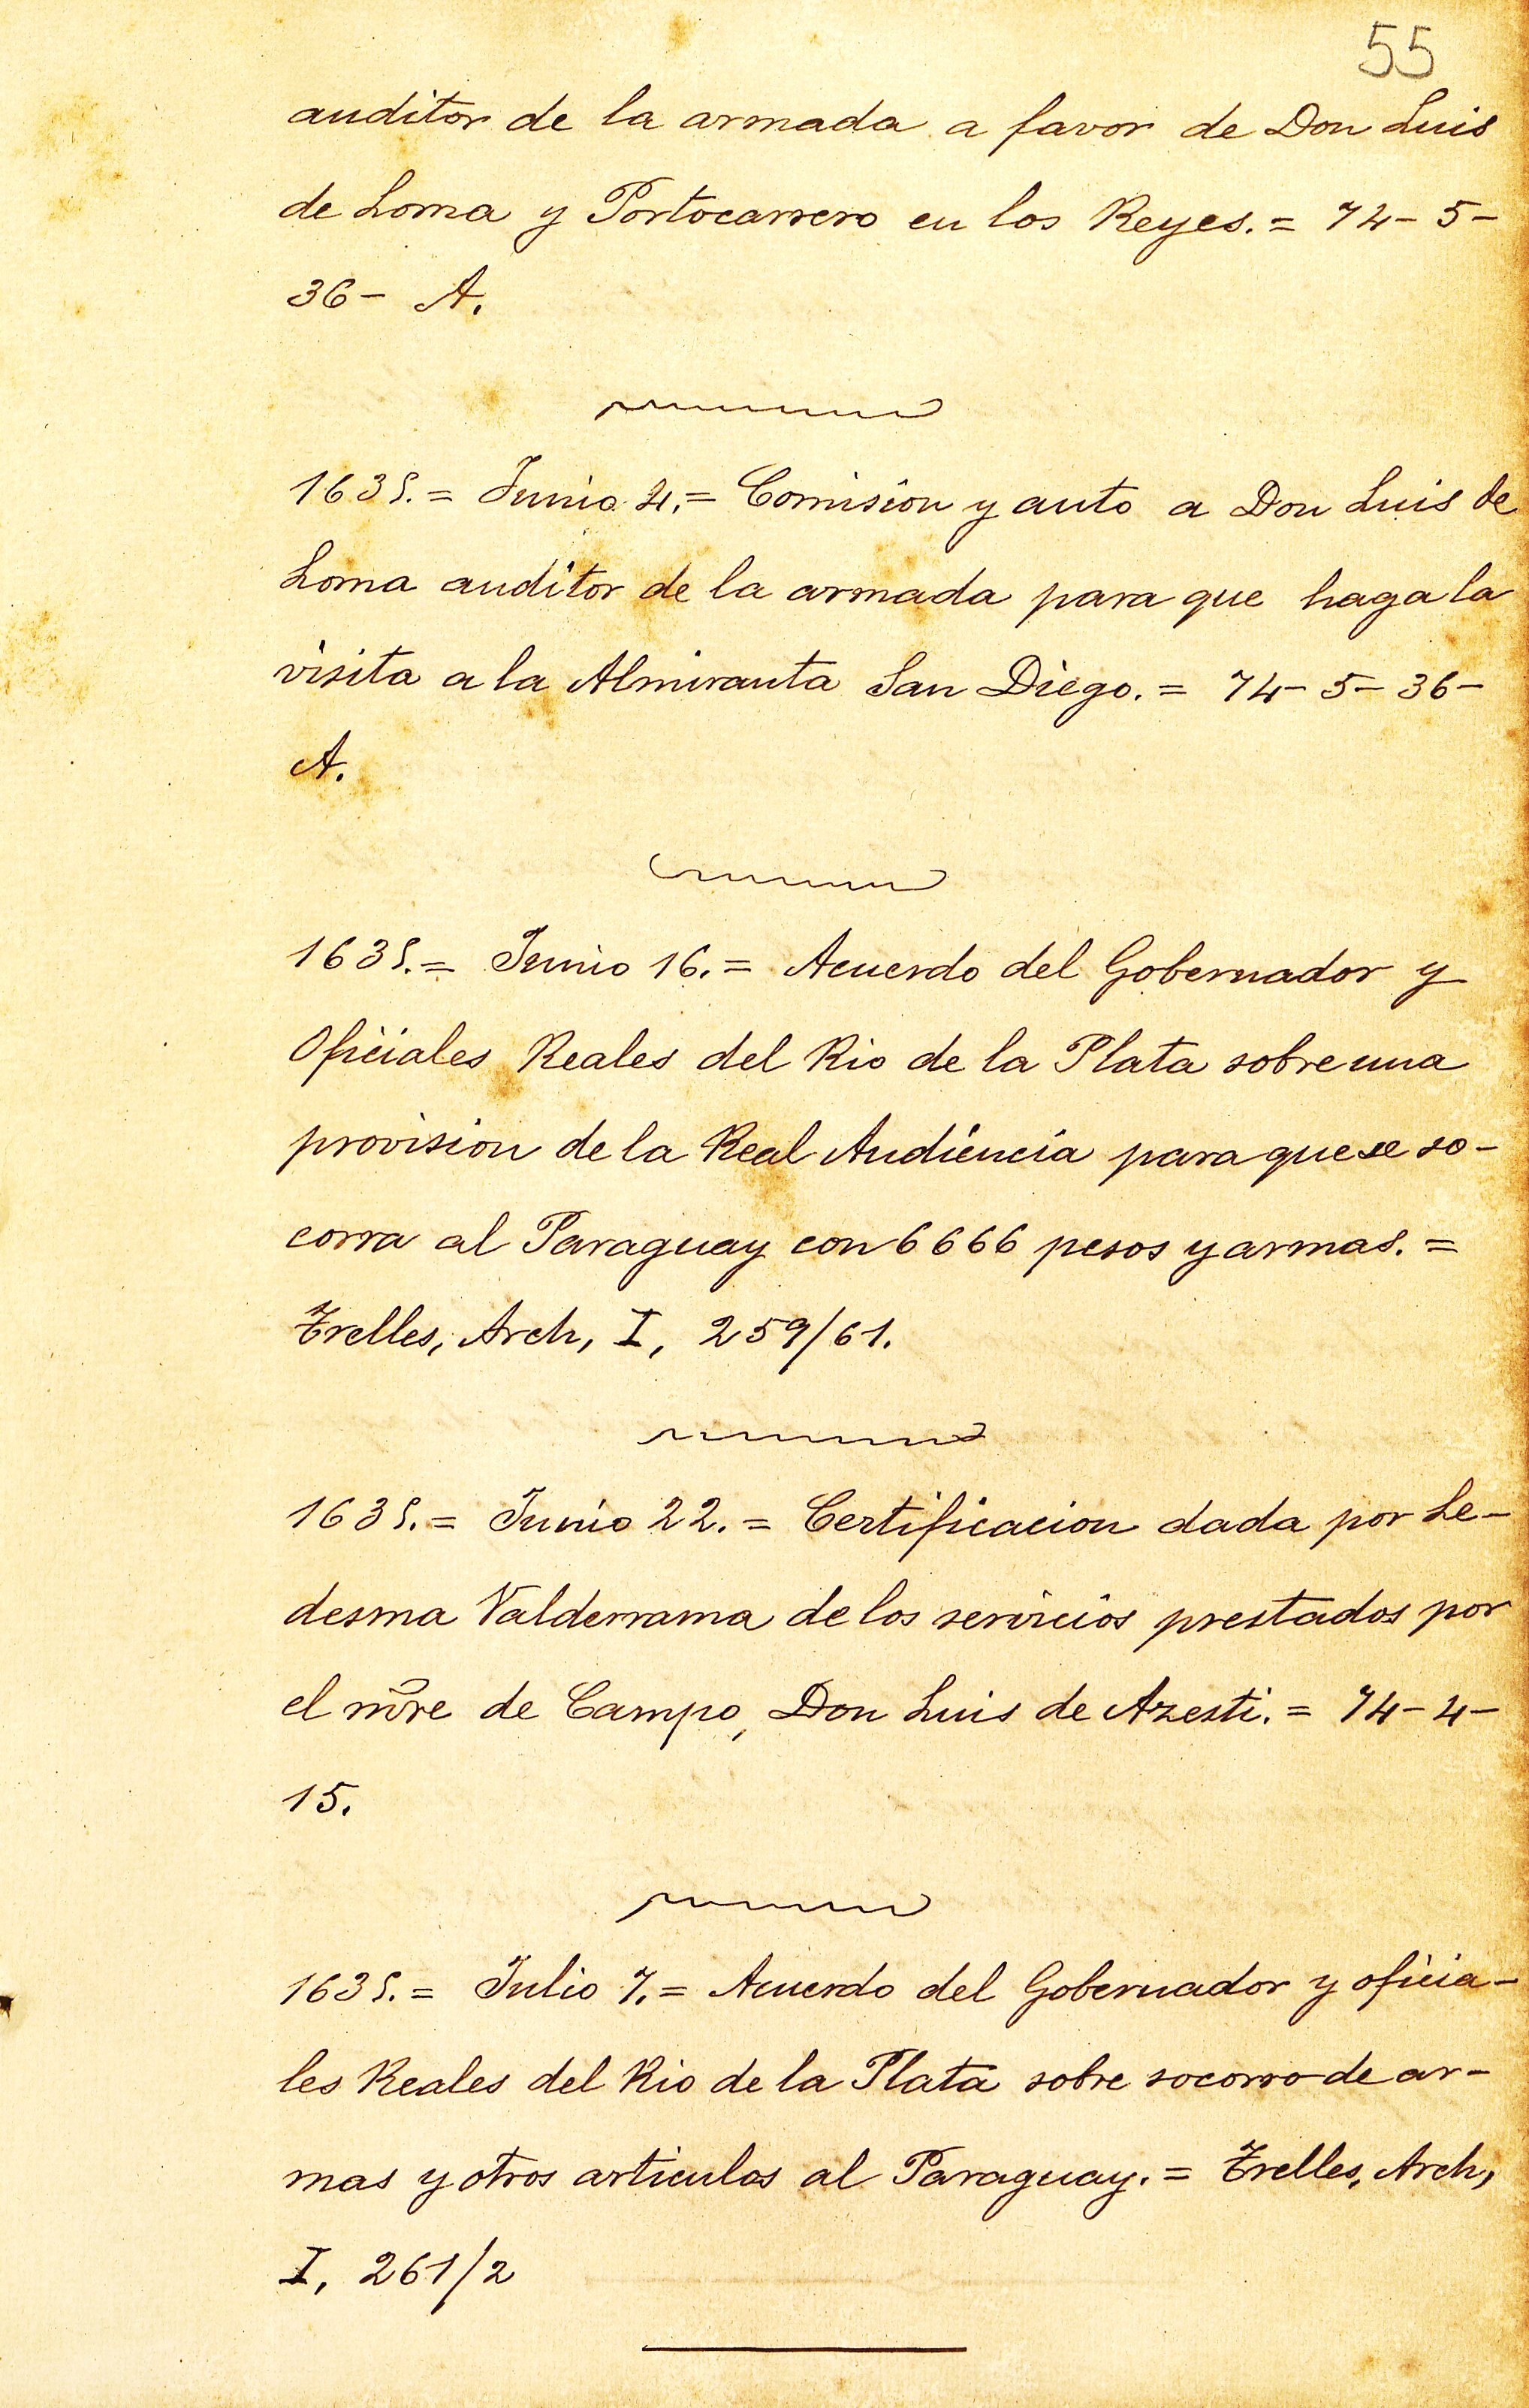 55
auditor de la armada a favor de Don Luis
de Loma y Portocarrero en los Reyes. = 74-5-
36- A.
1638. = Junio 4. = Comision y auto a Don Luis de
Loma auditor de la armada para que haga la
visita a la Almiranta San Diego. = 74-5-36-
A.
1638. = Junio 16. = Acuerdo del Gobernador y
Oficiales Reales del Rio de la Plata sobre una
provision de la Real Audiencia para que se so-
corra al Paraguay con 6666 pesos y armas. =
Trelles, Arch, I, 259/61.
1638. = Junio 22. = Certificacion dada por Le-
desma Valderrama de los servicios prestados por
el mre de Campo, Don Luis de Azesti. = 74-4-
15.
1638. = Julio 7. = Acuerdo del Gobernador y oficia-
les Reales del Rio de la Plata sobre socorro de ar-
mas y otros articulos al Paraguay. = Trelles, Arch,
I, 261/2